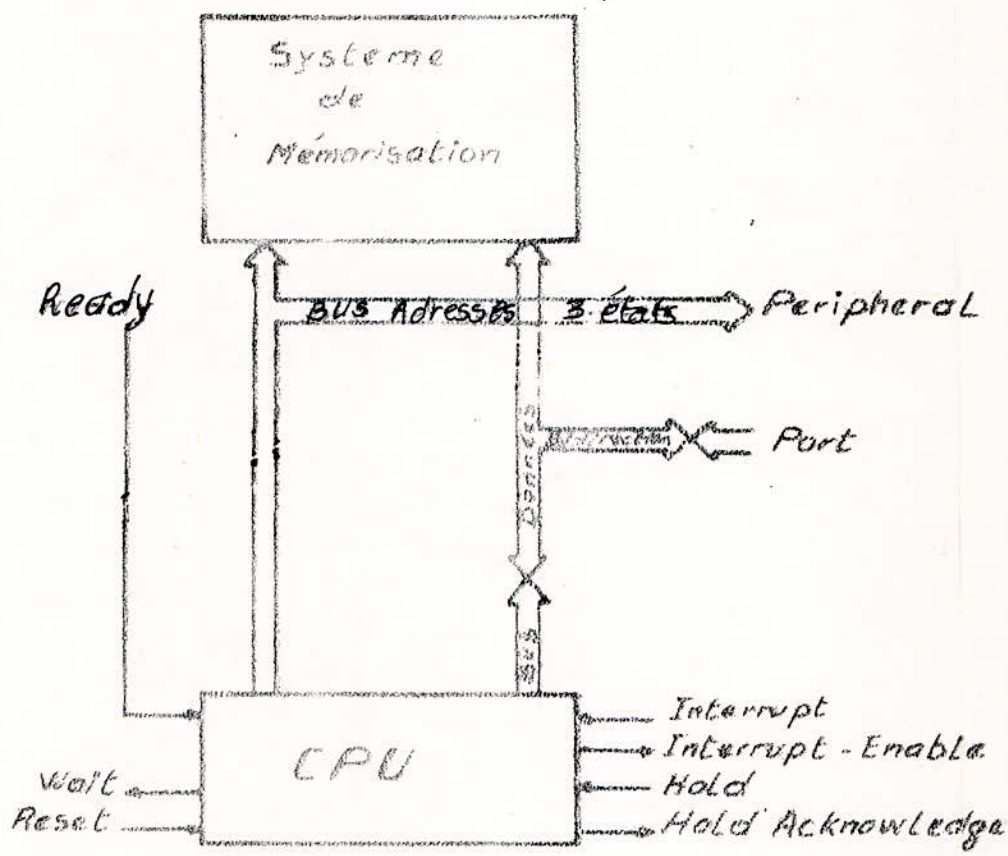 Systeme
de
Mémorisation
Ready
BUS Adresses 3 états
Peripheral
Données
Instruction
Port
Bus
CPU
Interrupt
Interrupt - Enable
Hold
Hold Acknowledge
Wait
Reset